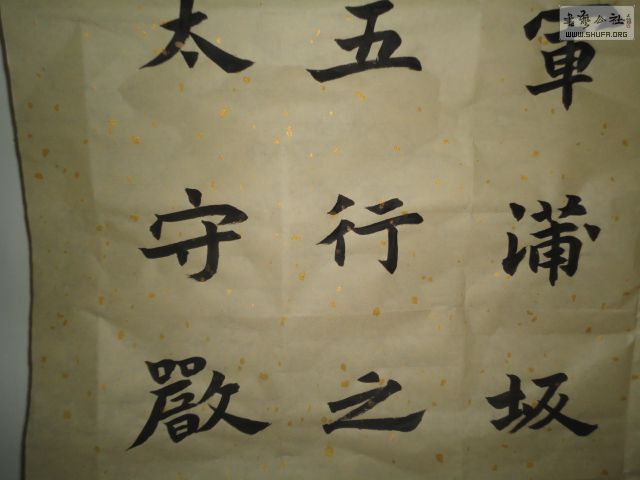 軍蒲坂
五行之
太守嚴
書藝公社
WWW.SHUFA.ORG